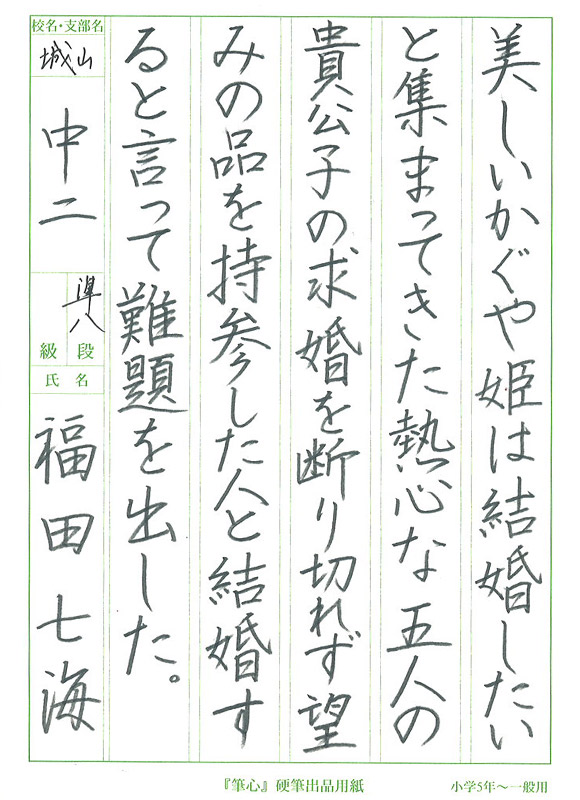 美しいかぐや姫は結婚したい
と集まってきた熱心な五人の
貴公子の求婚を断り切れず望
みの品を持参した人と結婚す
ると言って難題を出した。
校名・支部名
城山
中二
準八
級 段
氏 名
福田七海
『筆心』硬筆出品用紙
小学5年〜一般用